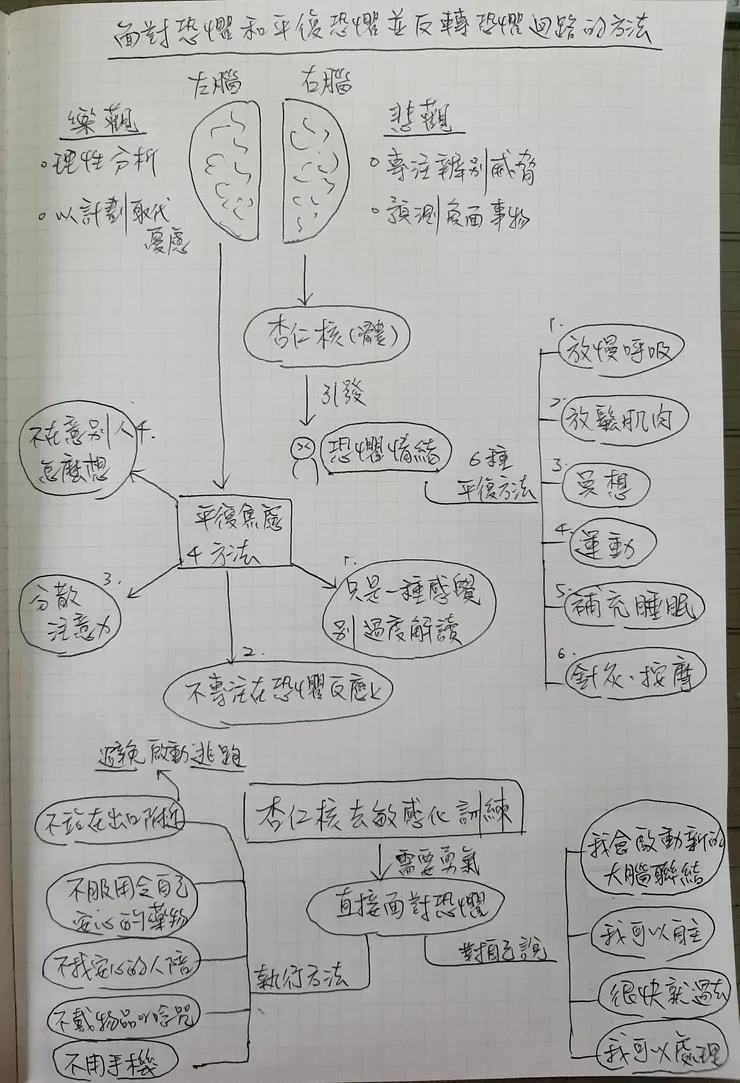 面對恐懼和平復恐懼並反轉恐懼迴路的方法
左腦
右腦
樂觀
•理性分析
•以計劃取代
憂慮
悲觀
•專注辨別威脅
•預測負面事物
杏仁核(體)
引發
恐懼情結
6種
平復方法
1.
放慢呼吸
2.
放鬆肌肉
3.
冥想
4.
運動
5.
補充睡眠
6.
針灸、按摩
平復焦慮
4方法
1.
只是一種感覺
別過度解讀
2.
不專注在恐懼反應上
3.
分散
注意力
4.
不在意別人
怎麼想
杏仁核去敏感化訓練
需要勇氣
直接面對恐懼
執行方法
避免啟動逃跑
不站在出口附近
不服用令自己
安心的藥物
不找安心的人陪
不戴物品or唸咒
不用手機
對自己說
我會啟動新的
大腦聯結
我可以自主
很快就過去
我可以處理